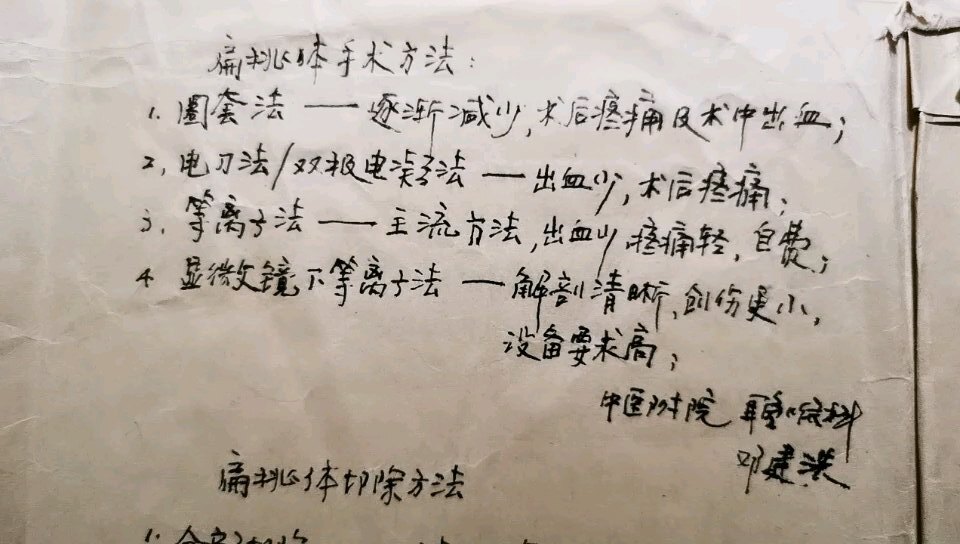 扁桃体手术方法：
1. 圈套法 —— 逐渐减少，术后疼痛及术中出血；
2, 电刀法/双极电凝法 —— 出血少，术后疼痛；
3, 等离子法 —— 主流方法，出血少，疼痛轻，自费；
4 显微镜下等离子法 —— 解剖清晰，创伤更小，
设备要求高；
中医附院 耳鼻喉科
邓建洪
扁桃体切除方法
1.